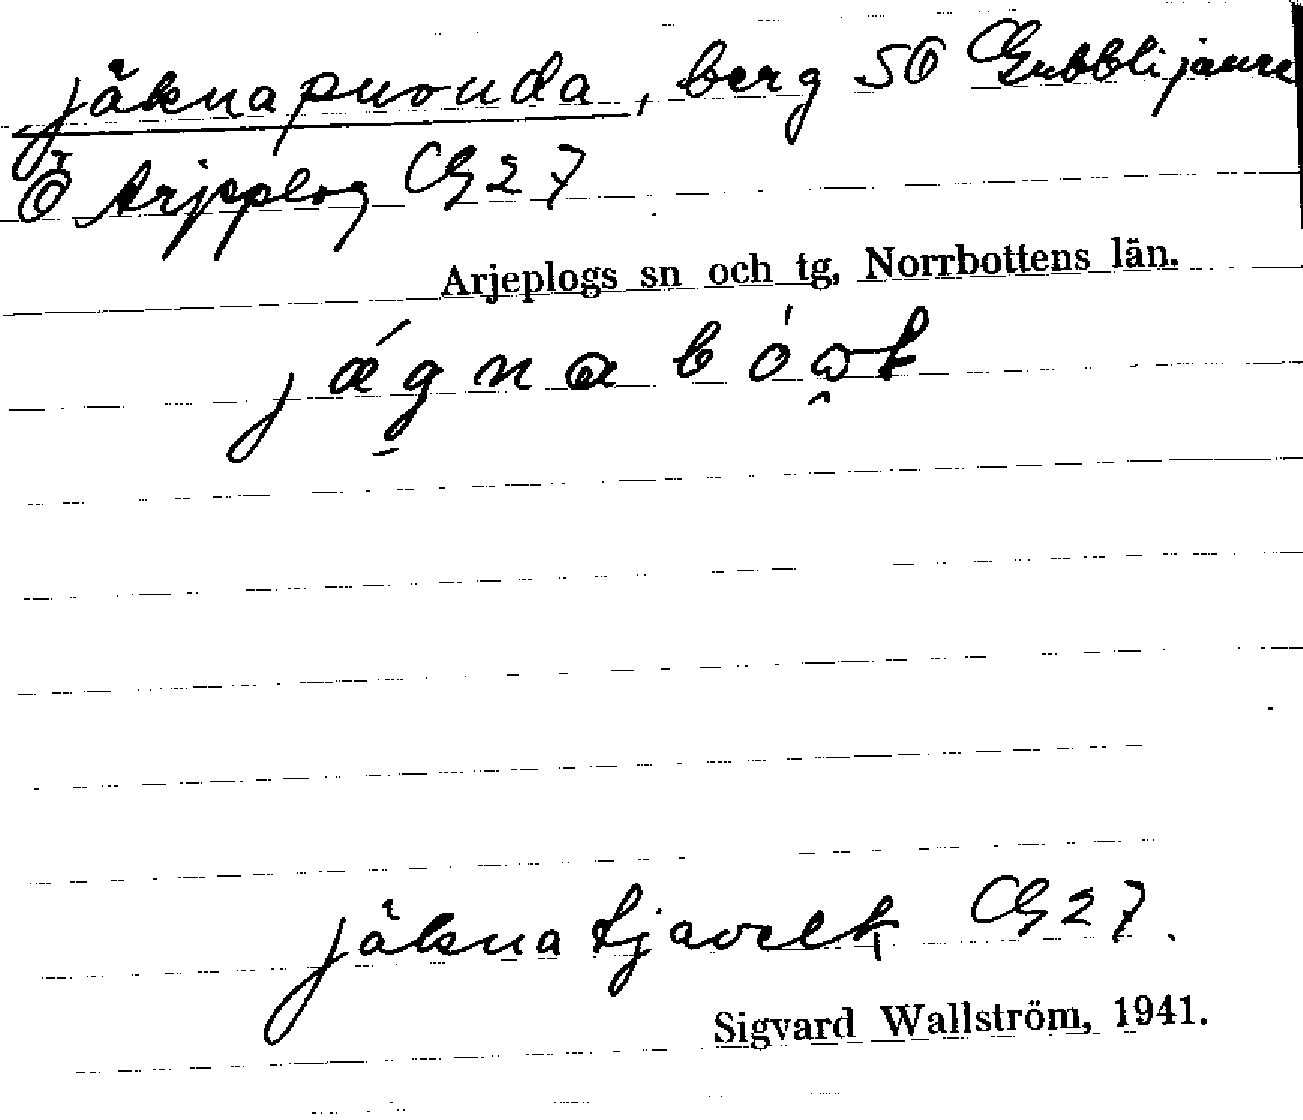 jäknapuouda, berg SO Gubblijaure
Ö Arjeplog CG27
Arjeplogs sn och tg, Norrbottens län.
jágnabóɷt
jäknatjavelk CG27.
Sigvard Wallström, 1941.